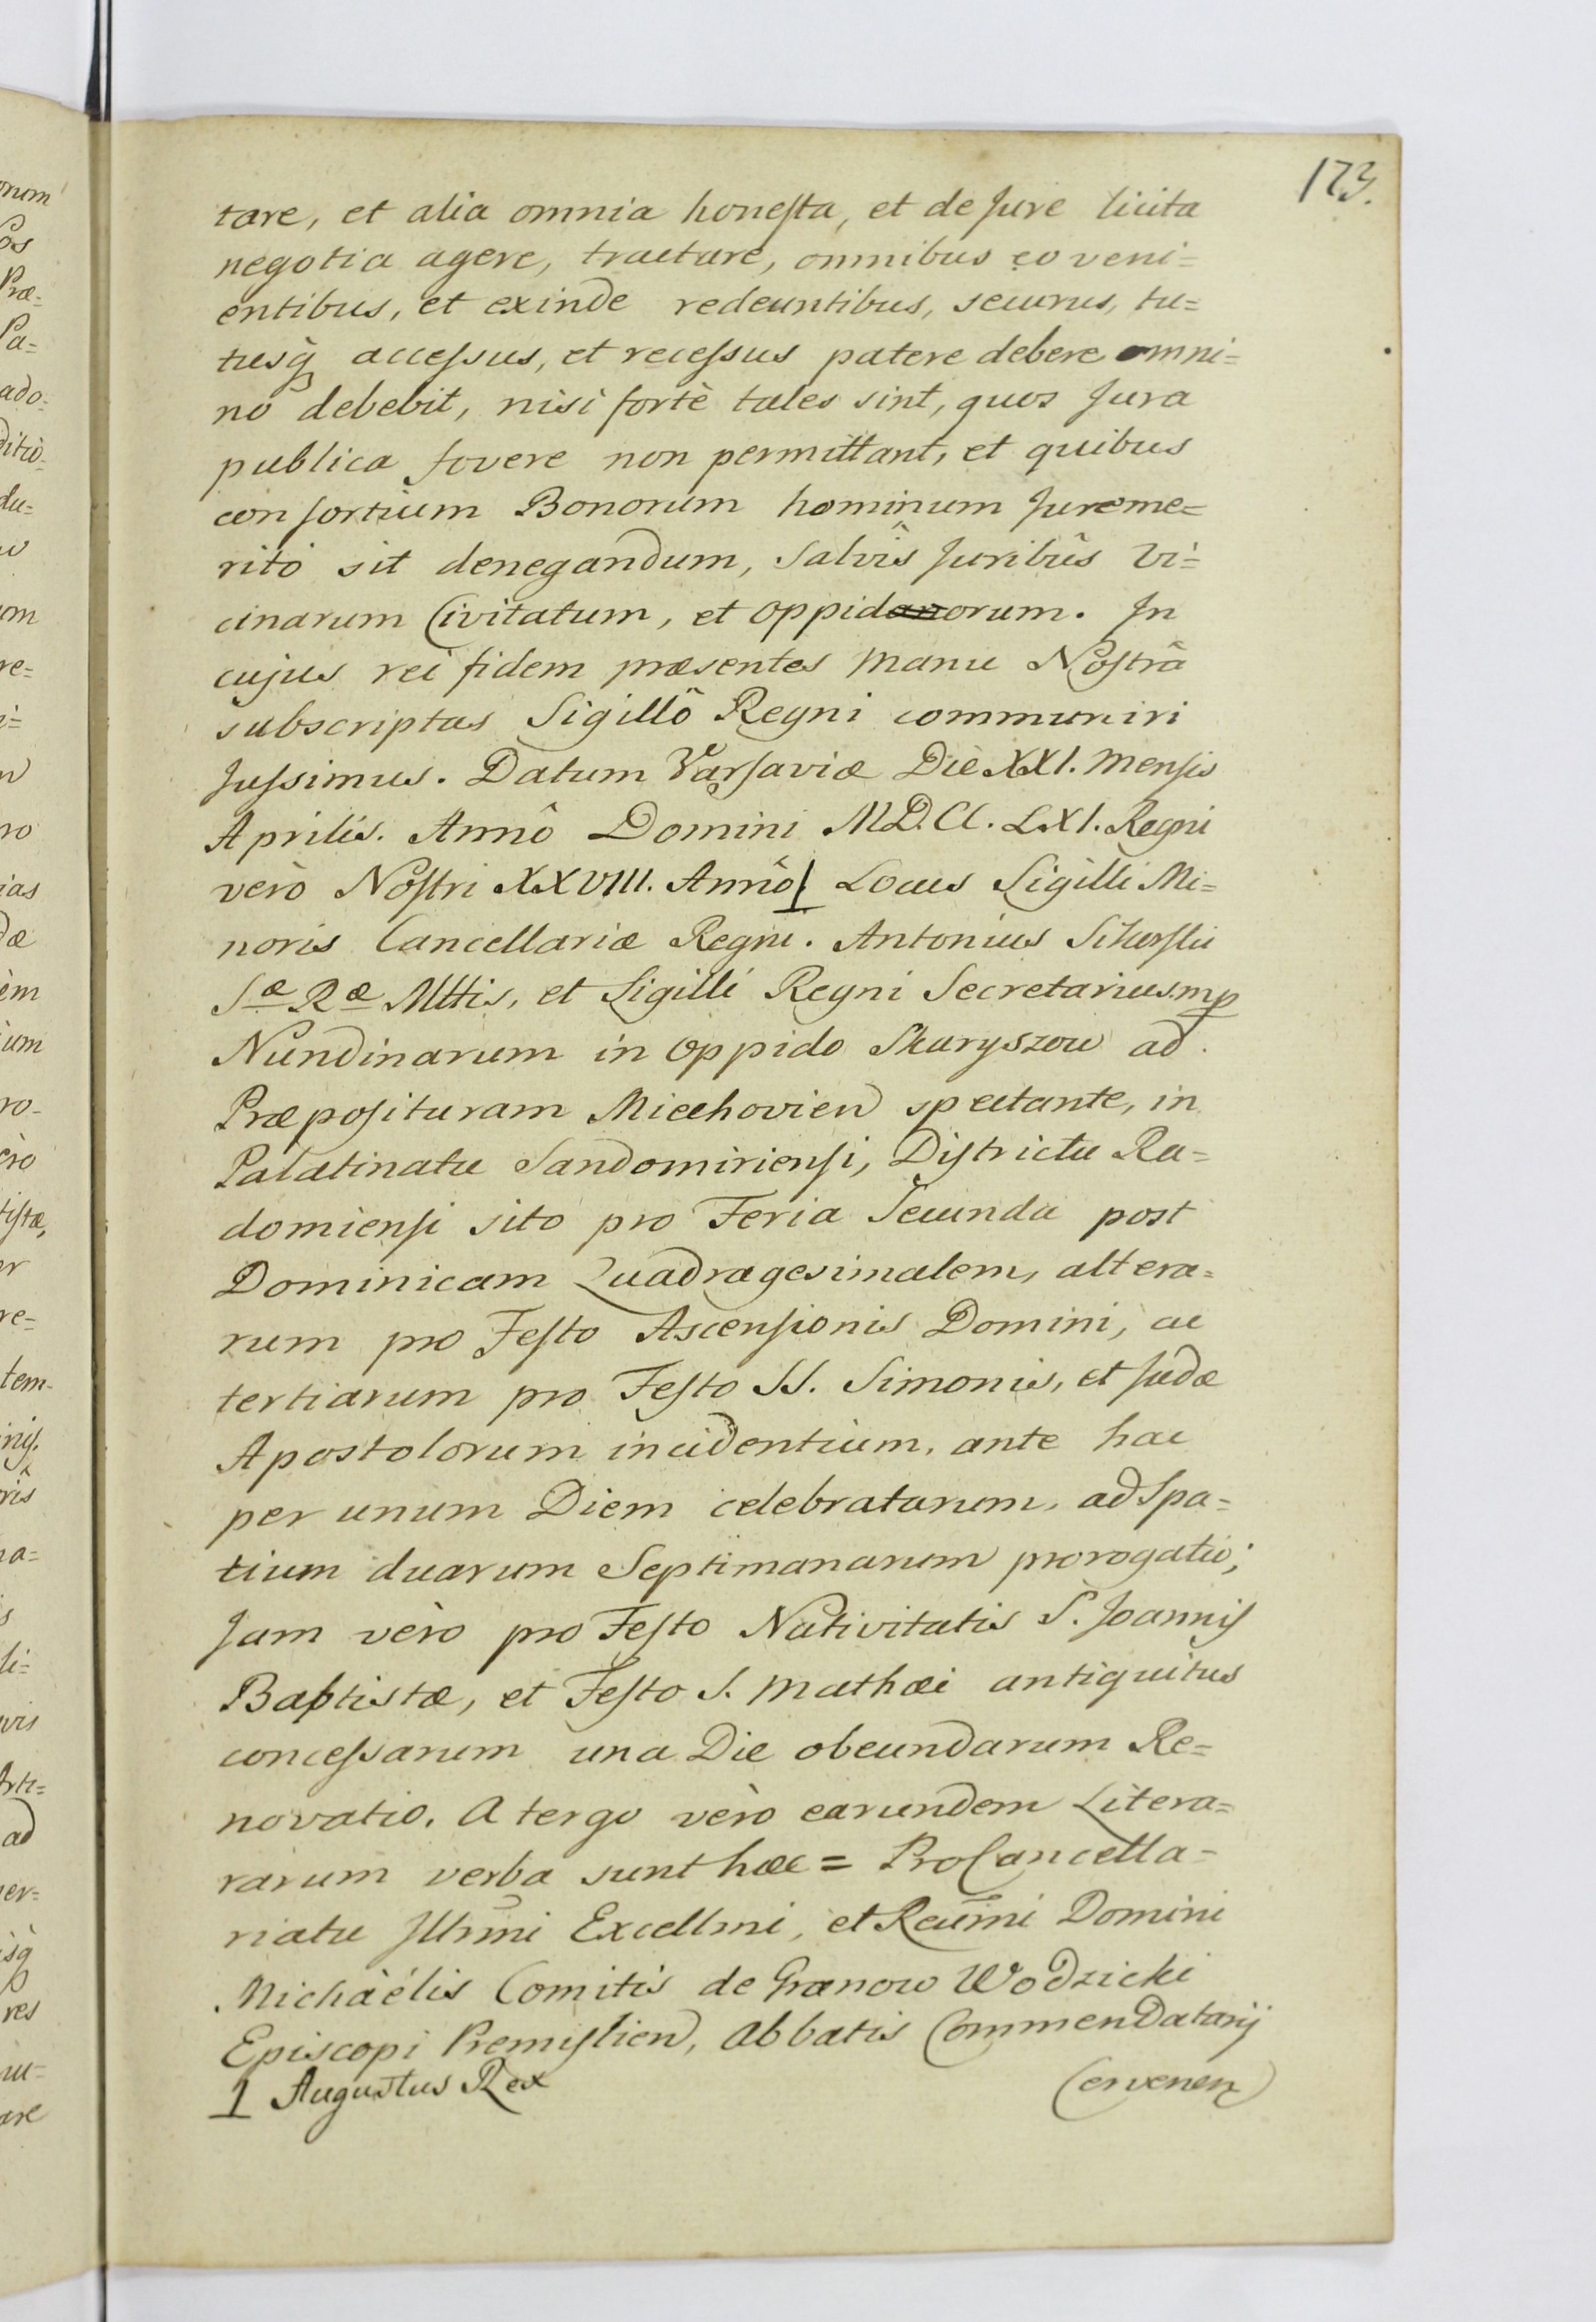 173.
tare, et alia omnia honesta, et de Jure licita
negotia agere, tractare, omnibus eo veni=
entibus, et exinde redeuntibus, securus, tu=
tusq accessus, et recessus patere debere omni=
no debebit, nisi fortè tales sint, quos Jura
publica fovere non permittant, et quibus
consortium Bonorum hominum Jureme=
rito sit denegandum, Salvîs Juribûs Vi=
cinarum Civitatum, et Oppidanorum. In
cujus rei fidem præsentes Manu Nostrâ
subscriptas Sigillô Regni communiri
Jussimus. Datum Varsaviæ Die XXI. Mensis
Aprilis. Annô Domini MD.CC.LXI. Regni
verò Nostri XXVIII. Annô Locus Sigilli Mi=
noris Cancellariæ Regni. Antonius Sikorski
Sæ Ræ Mttis, et Sigilli Regni Secretarius.mp
Nundinarum in Oppido Skaryszow ad
Præposituram Miechovien spectante, in
Palatinatu Sandomiriensi, Districtu Ra=
domiensi sito pro Feria Secunda post
Dominicam Quadragesimalem, altera=
rum pro Festo Ascensionis Domini, ac
tertiarum pro Festo SS. Simonis, et Judæ
Apostolorum incidentium, ante hac
per unum Diem celebratarum, ad Spa=
tium duarum Septimanarum prorogatio;
Jam verò pro Festo Nativitatis S. Joannis
Baptistæ, et Festo S. Mathæi antiquitus
concessarum una Die obeundarum Re=
novatio. A tergo verò earundem Litera=
rarum verba sunt hæc = ProCancella=
riatu Illmi Excellmi, et Reumi Domini
Michaëlis Comitis de Granow Wodzicki
Episcopi Premislien, Abbatis Commendatarij
1 Augustus Rex
Cervenen